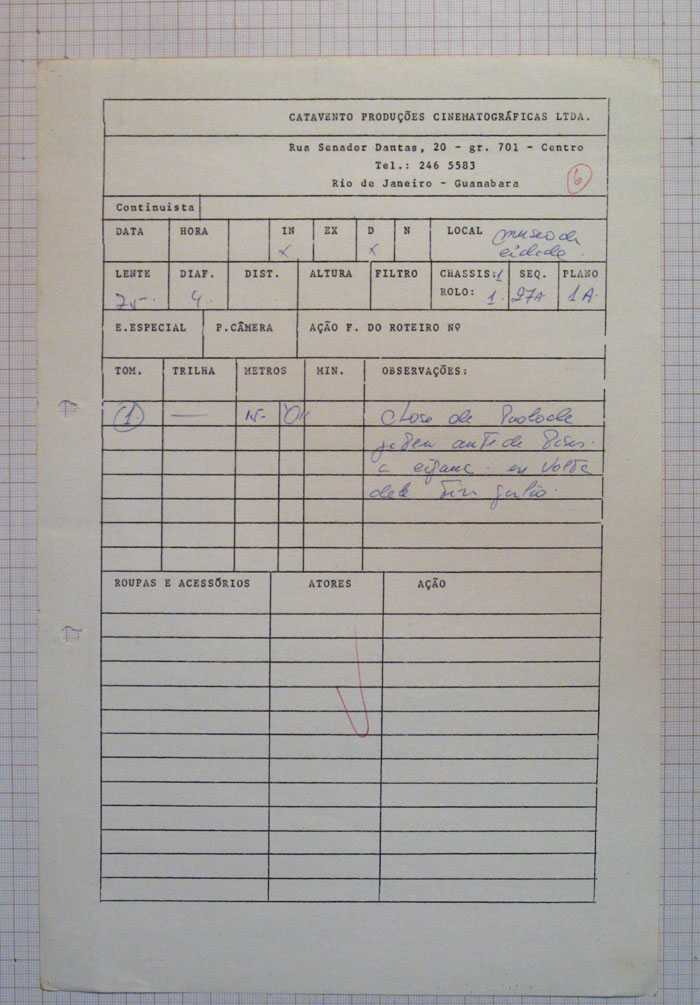 CATAVENTO PRODUÇÕES CINEMATOGRÁFICAS LTDA.
Rua Senador Dantas, 20 - gr. 701 - Centro
Tel.: 246 5583
Rio de Janeiro - Guanabara
6
Continuista
DATA HORA IN EX D N LOCAL museo da
x x cidade.
LENTE DIAF. DIST. ALTURA FILTRO CHASSIS:1 SEQ. PLANO
75- 4. ROLO: 1. 27A 1A.
E.ESPECIAL P.CÂMERA AÇÃO F. DO ROTEIRO Nº
TOM. TRILHA METROS MIN. OBSERVAÇÕES:
1. — 15- OK close de
ante de
a volta
ROUPAS E ACESSÓRIOS ATORES AÇÃO